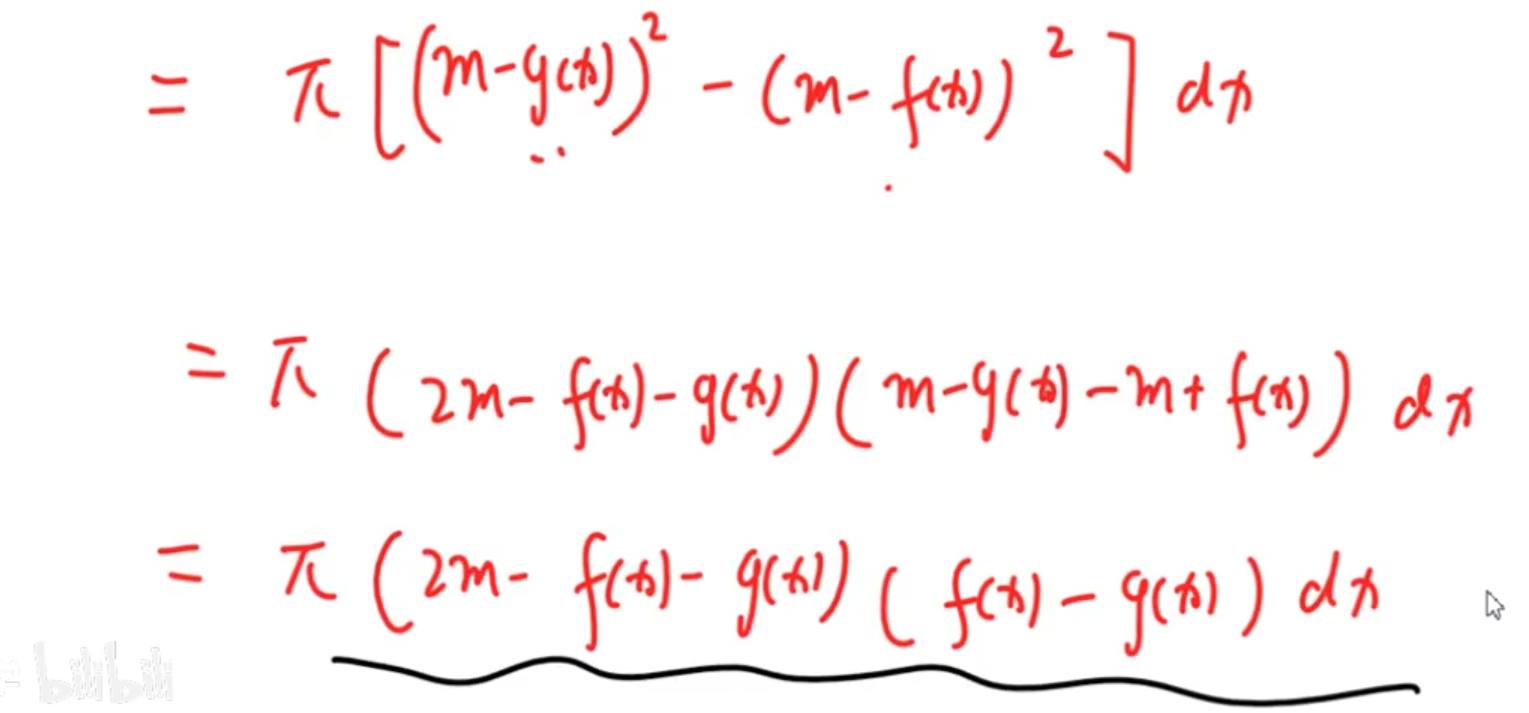 = π [(m-g(x))² - (m-f(x))²] dx
= π (2m-f(x)-g(x))(m-g(x)-m+f(x)) dx
= π (2m-f(x)-g(x))(f(x)-g(x)) dx
bilibili